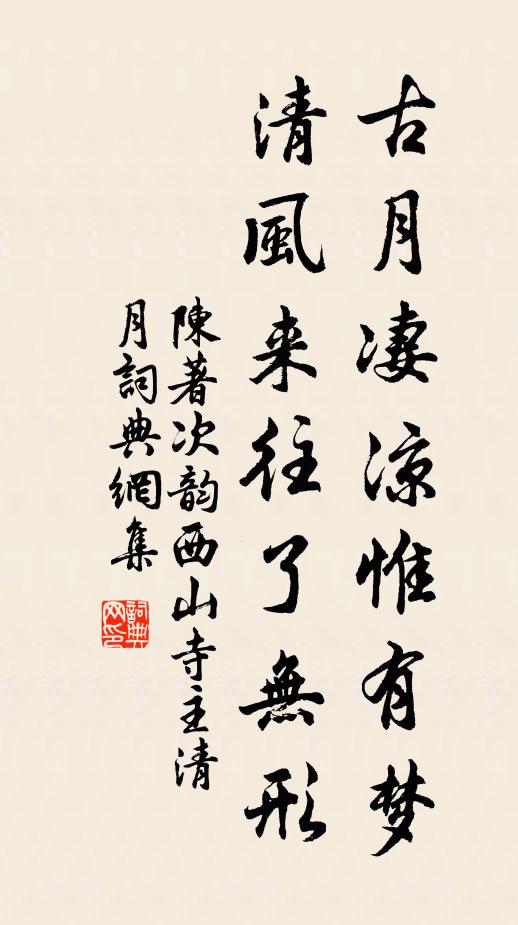 古月凄涼惟有梦
清風来往了無形
陳著次韵西山寺主清
月詞典網集
詞典
网印